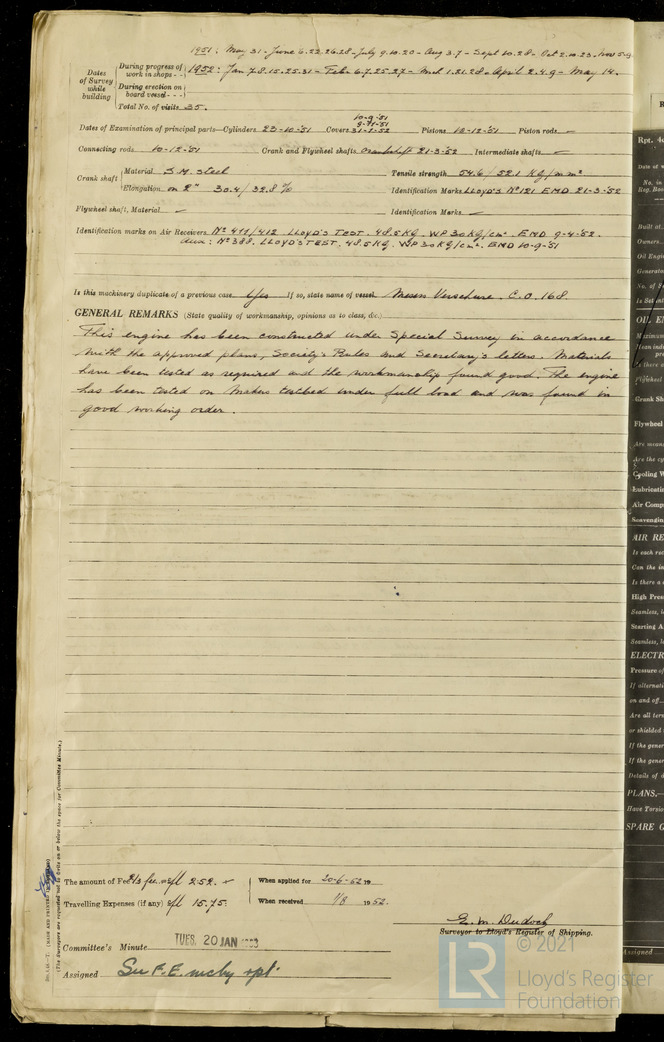 1951: May 31 - June 6.22.26.28 - July 9.10.20 - Aug 3.7 - Sept 10.28 - Oct 2.10.23 - Nov 5.9
Dates of Survey while building
During progress of work in shops - - 1952: Jan 7.8.15.25.31 - Feb 6.7.25.27 - Mch 1.21.28 - April 2.4.9 - May 14.
During erection on board vessel - - -
Total No. of visits 35.
10-9-'51
Dates of Examination of principal parts—Cylinders 23-10-'51 Covers 31-1-52 Pistons 10-12-'51 Piston rods —
Connecting rods 10-12-'51 Crank and Flywheel shafts crankshaft 21-3-'52 Intermediate shafts —
Crank shaft Material S.M. steel Tensile strength 54.6 / 52.1 KG/mm²
Elongation on 2" 30.4 / 32.8 % Identification Marks LLOYD'S Nº 121 EMD 21-3-'52
Flywheel shaft, Material — Identification Marks —
Identification marks on Air Receivers Nº 411/412 LLOYD'S TEST. 48.5 KG. WP 30 KG/cm². EMD 9-4-'52.
Aux: Nº 388. LLOYD'S TEST. 48.5 KG. WP 30 KG/cm². EMD 10-9-'51
Is this machinery duplicate of a previous case Yes If so, state name of vessel Messrs Verschure. C.O. 168.
GENERAL REMARKS (State quality of workmanship, opinions as to class, &c.)
This engine has been constructed under Special Survey in accordance
with the approved plans, Society's Rules and Secretary's letters. Materials
have been tested as required and the workmanship found good. The engine
has been tested on Makers testbed under full load and was found in
good working order.
The amount of Fee 2/3 fee = fl 252. When applied for 20-6-52 19
Travelling Expenses (if any) fl 15.75. When received 1/8 1952.
E. M. Dudoch
Surveyor to Lloyd's Register of Shipping.
Committee's Minute TUES. 20 JAN
Assigned See F.E. mchy rpt.
(The Surveyors are requested not to write on or below the space for Committee Minute.)
© 2021
LR Lloyd's Register
Foundation